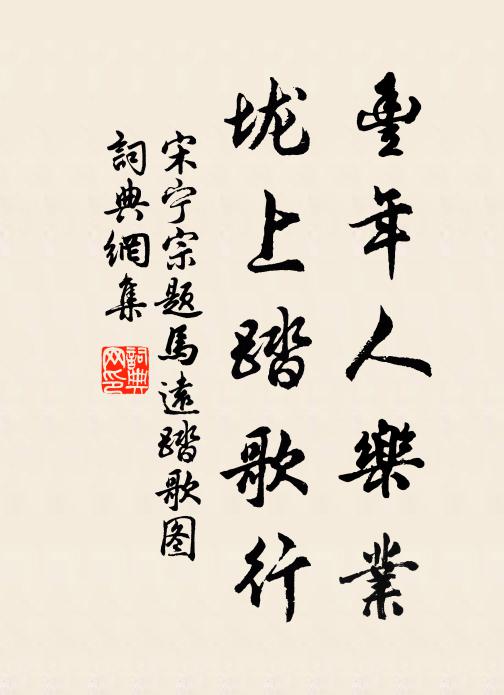 豐年人樂業
垅上踏歌行
宋宁宗题馬遠踏歌图
詞典網集
詞典网印